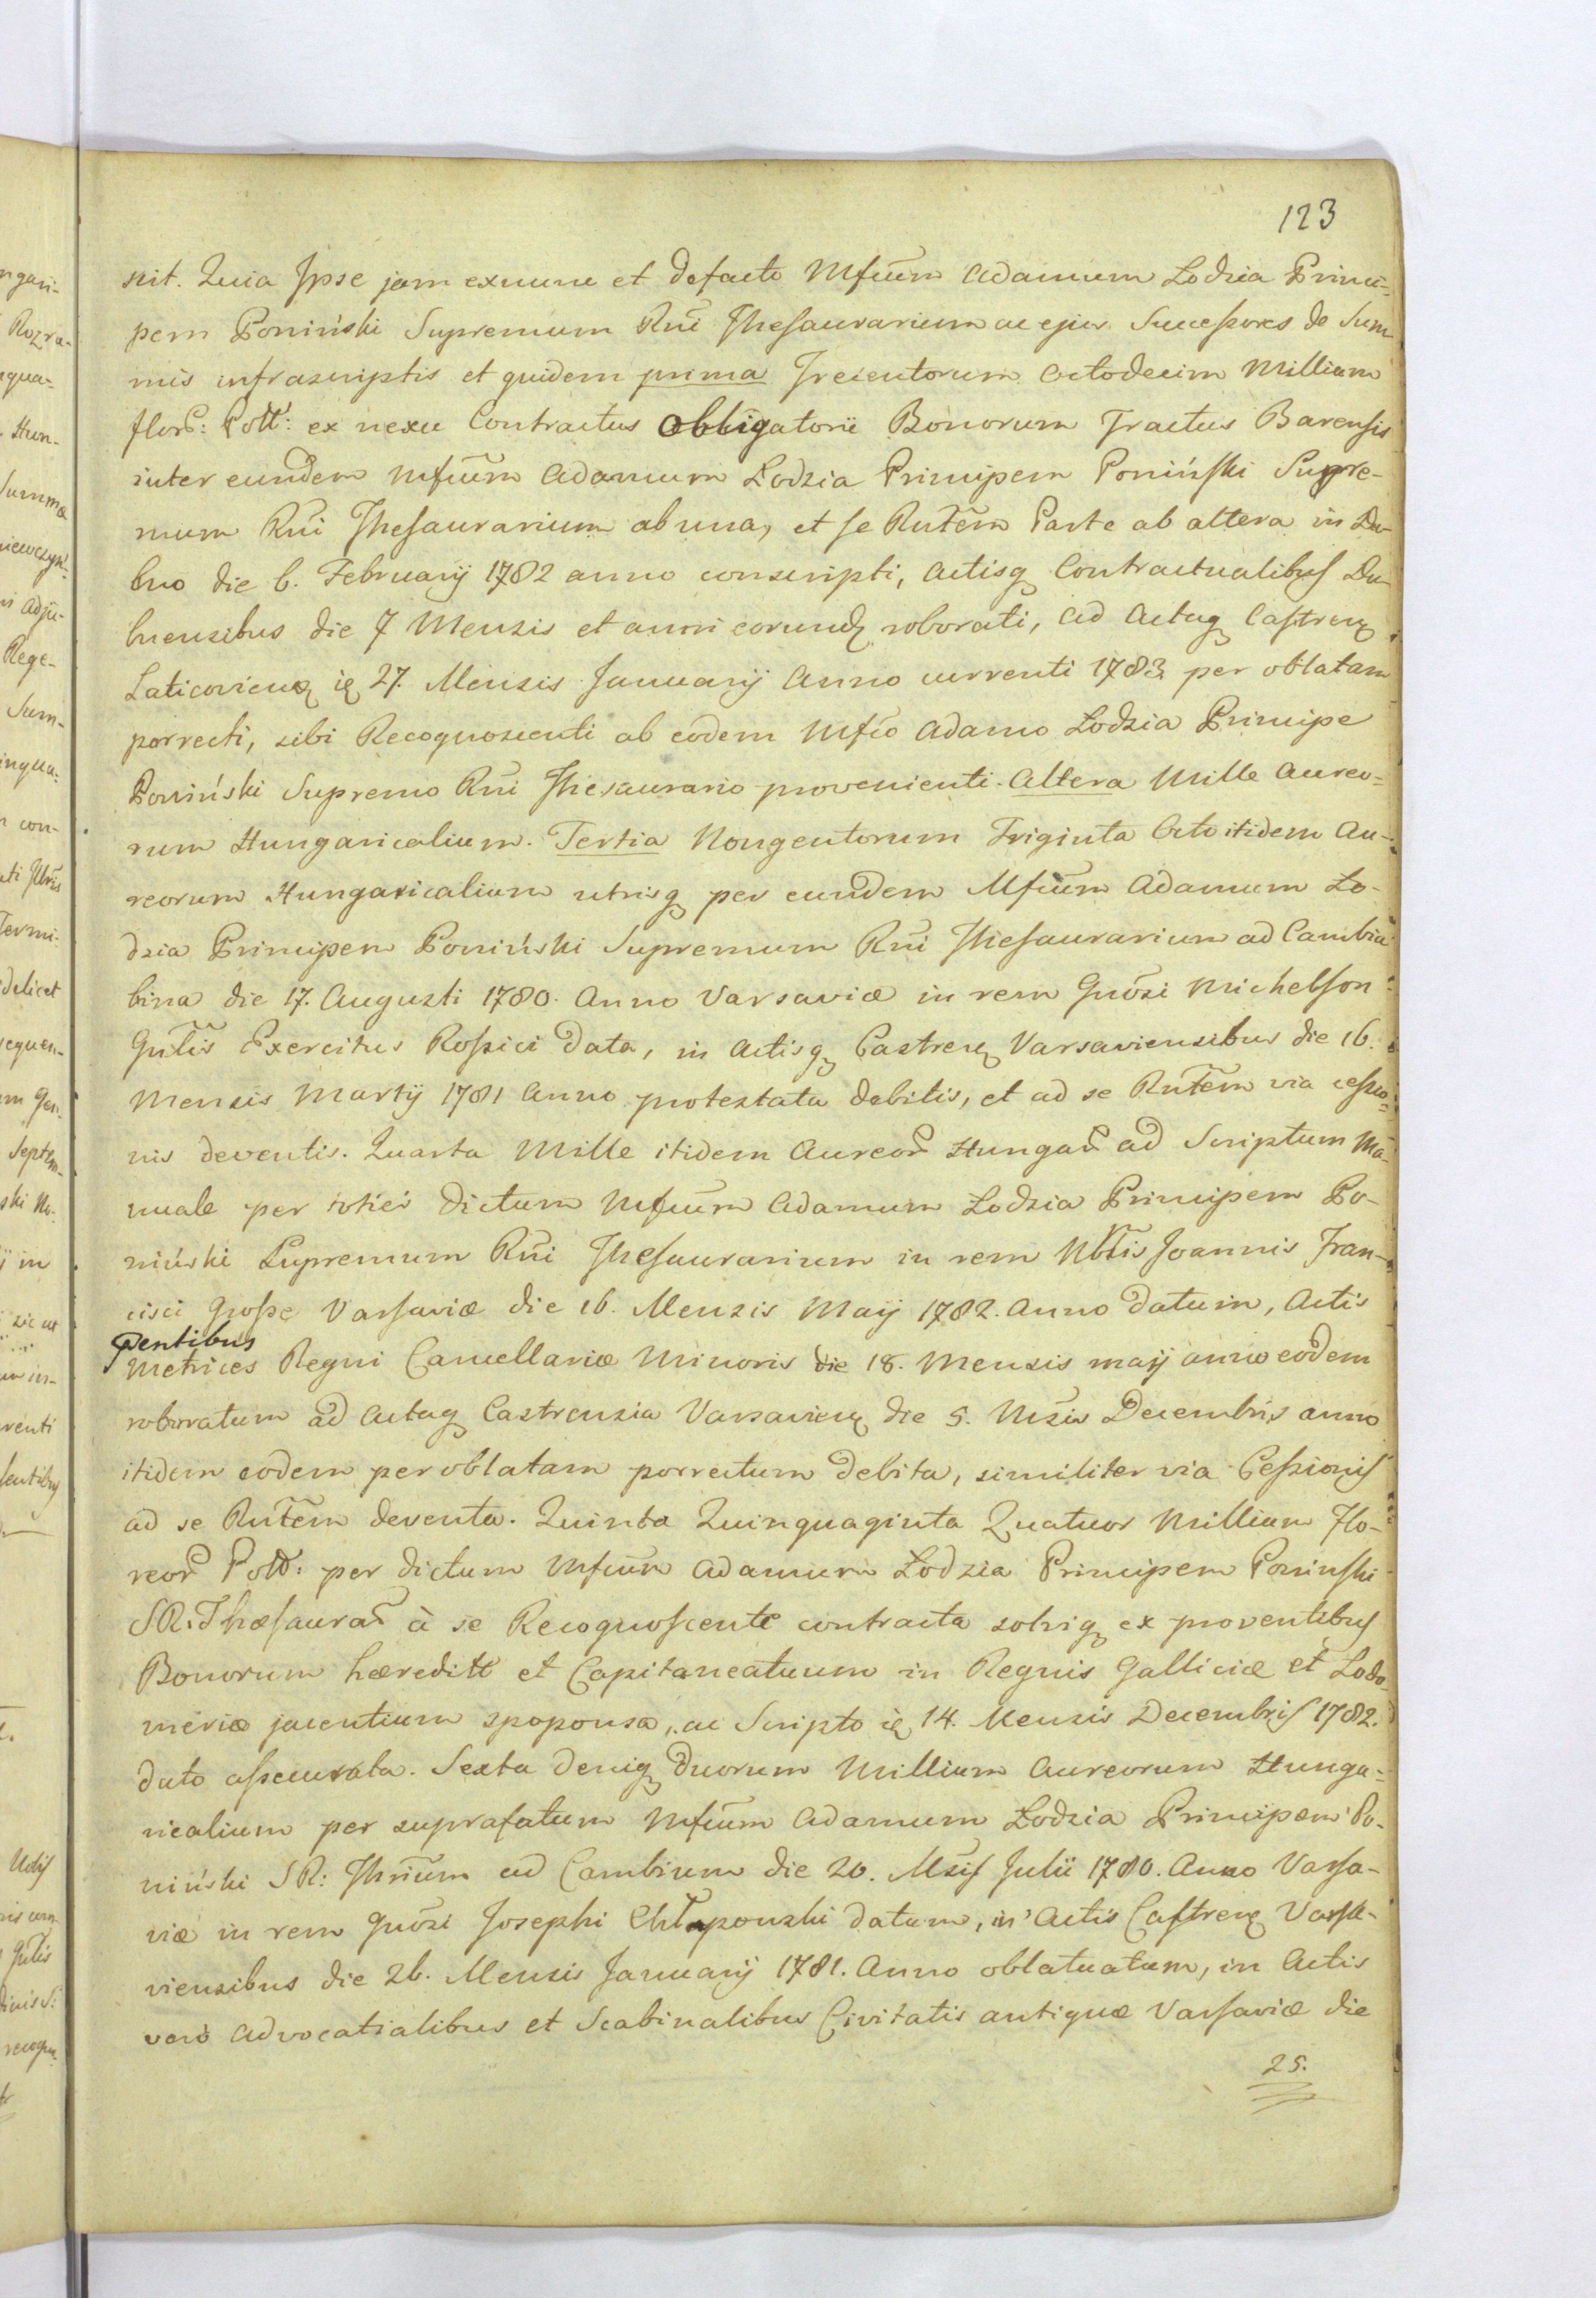 123
nit. Quia Ipse jam exnunc et defacto Mfcum Adamum Lodzia Princi=
pem Poniński Supremum Rni Thesaurarium ac ejus Successores de Sum
mis infrascriptis et quidem prima Trecentorum Octodecim Millium
flor: Poll: ex nexu Contractus Obligatorii Bonorum Tractus Barensis
inter eundem Mfcum Adamum Łodzia Principem Poniński Supre-
mum Rni Thesaurarium ab una, et se Rntem Parte ab altera in Du-
bno die 6. February 1782 anno conscripti, Actisq Contractualibus Du-
bnensibus die 7 Mensis et anni eorund roborati, ad Actaq Castren
Laticovien ie 27. Mensis January Anno currenti 1783 per oblatam
porrecti, sibi Recognoscenti ab eodem Mfco Adamo Łodzia Principe
Poniński Supremo Rni Thesaurario provenienti. Altera Mille Aureo-
rum Hungaricalium. Tertia Nongentorum Triginta Octo itidem Au-
reorum Hungaricalium utrisq per eundem Mfcum Adamum Ło-
dzia Principem Poniński Supremum Rni Thesaurarium ad Cambia
bina die 17. Augusti 1780. Anno Varsaviæ in rem Gnosi Michelson
Gnlis Exercitus Rossici data, in Actisq Castren Varsaviensibus die 16.
Mensis Martij 1781 Anno protestata debitis, et ad se Rntem via cessio-
nis deventis. Quarta Mille itidem Aureor Hungar ad Scriptum Ma-
nuale per toties dictum Mfcum Adamum Łodzia Principem Po-
niński Supremum Rni Thesaurarium in rem Nblis Joannis Fran-
cisci Grosse Varsaviæ die 16. Mensis Maij 1782. Anno datum, Actis
pentibus
Metrices Regni Cancellariæ Minoris die 18. Mensis maij anno eodem
roboratum ad Actaq Castrensia Varsavien die 5. Msis Decembris anno
itidem eodem per oblatam porrectum debita, similiter via Cessionis
ad se Rntem deventa. Quinta Quinquaginta Quatuor Millium Flo-
reor Poll: per dictum Mfcum Adamum Łodzia Principem Poninski
S R: Thæsaurar à se Recognoscente contracta solviq ex proventibus
Bonorum hæreditt et Capitaneatuum in Regnis Galliciæ et Lodo-
meriæ jacentium spoponsa, ac Scripto ie 14. Mensis Decembris 1782.
dato assecurata. Sexta deniq duorum Millium Aureorum Hunga=
ricalium per suprafatum Mfcum Adamum Łodzia Principem Po-
niński S R: Thrium ad Cambium die 20. Msis Julii 1780. Anno Varsa-
viæ in rem Gnosi Josephi Chłaponski datum, in Actis Castren Varsa-
viensibus die 26. Mensis January 1781. Anno oblatuatum, in Actis
vero Advocatialibus et Scabinalibus Civitatis antiquæ Varsaviæ die
25.